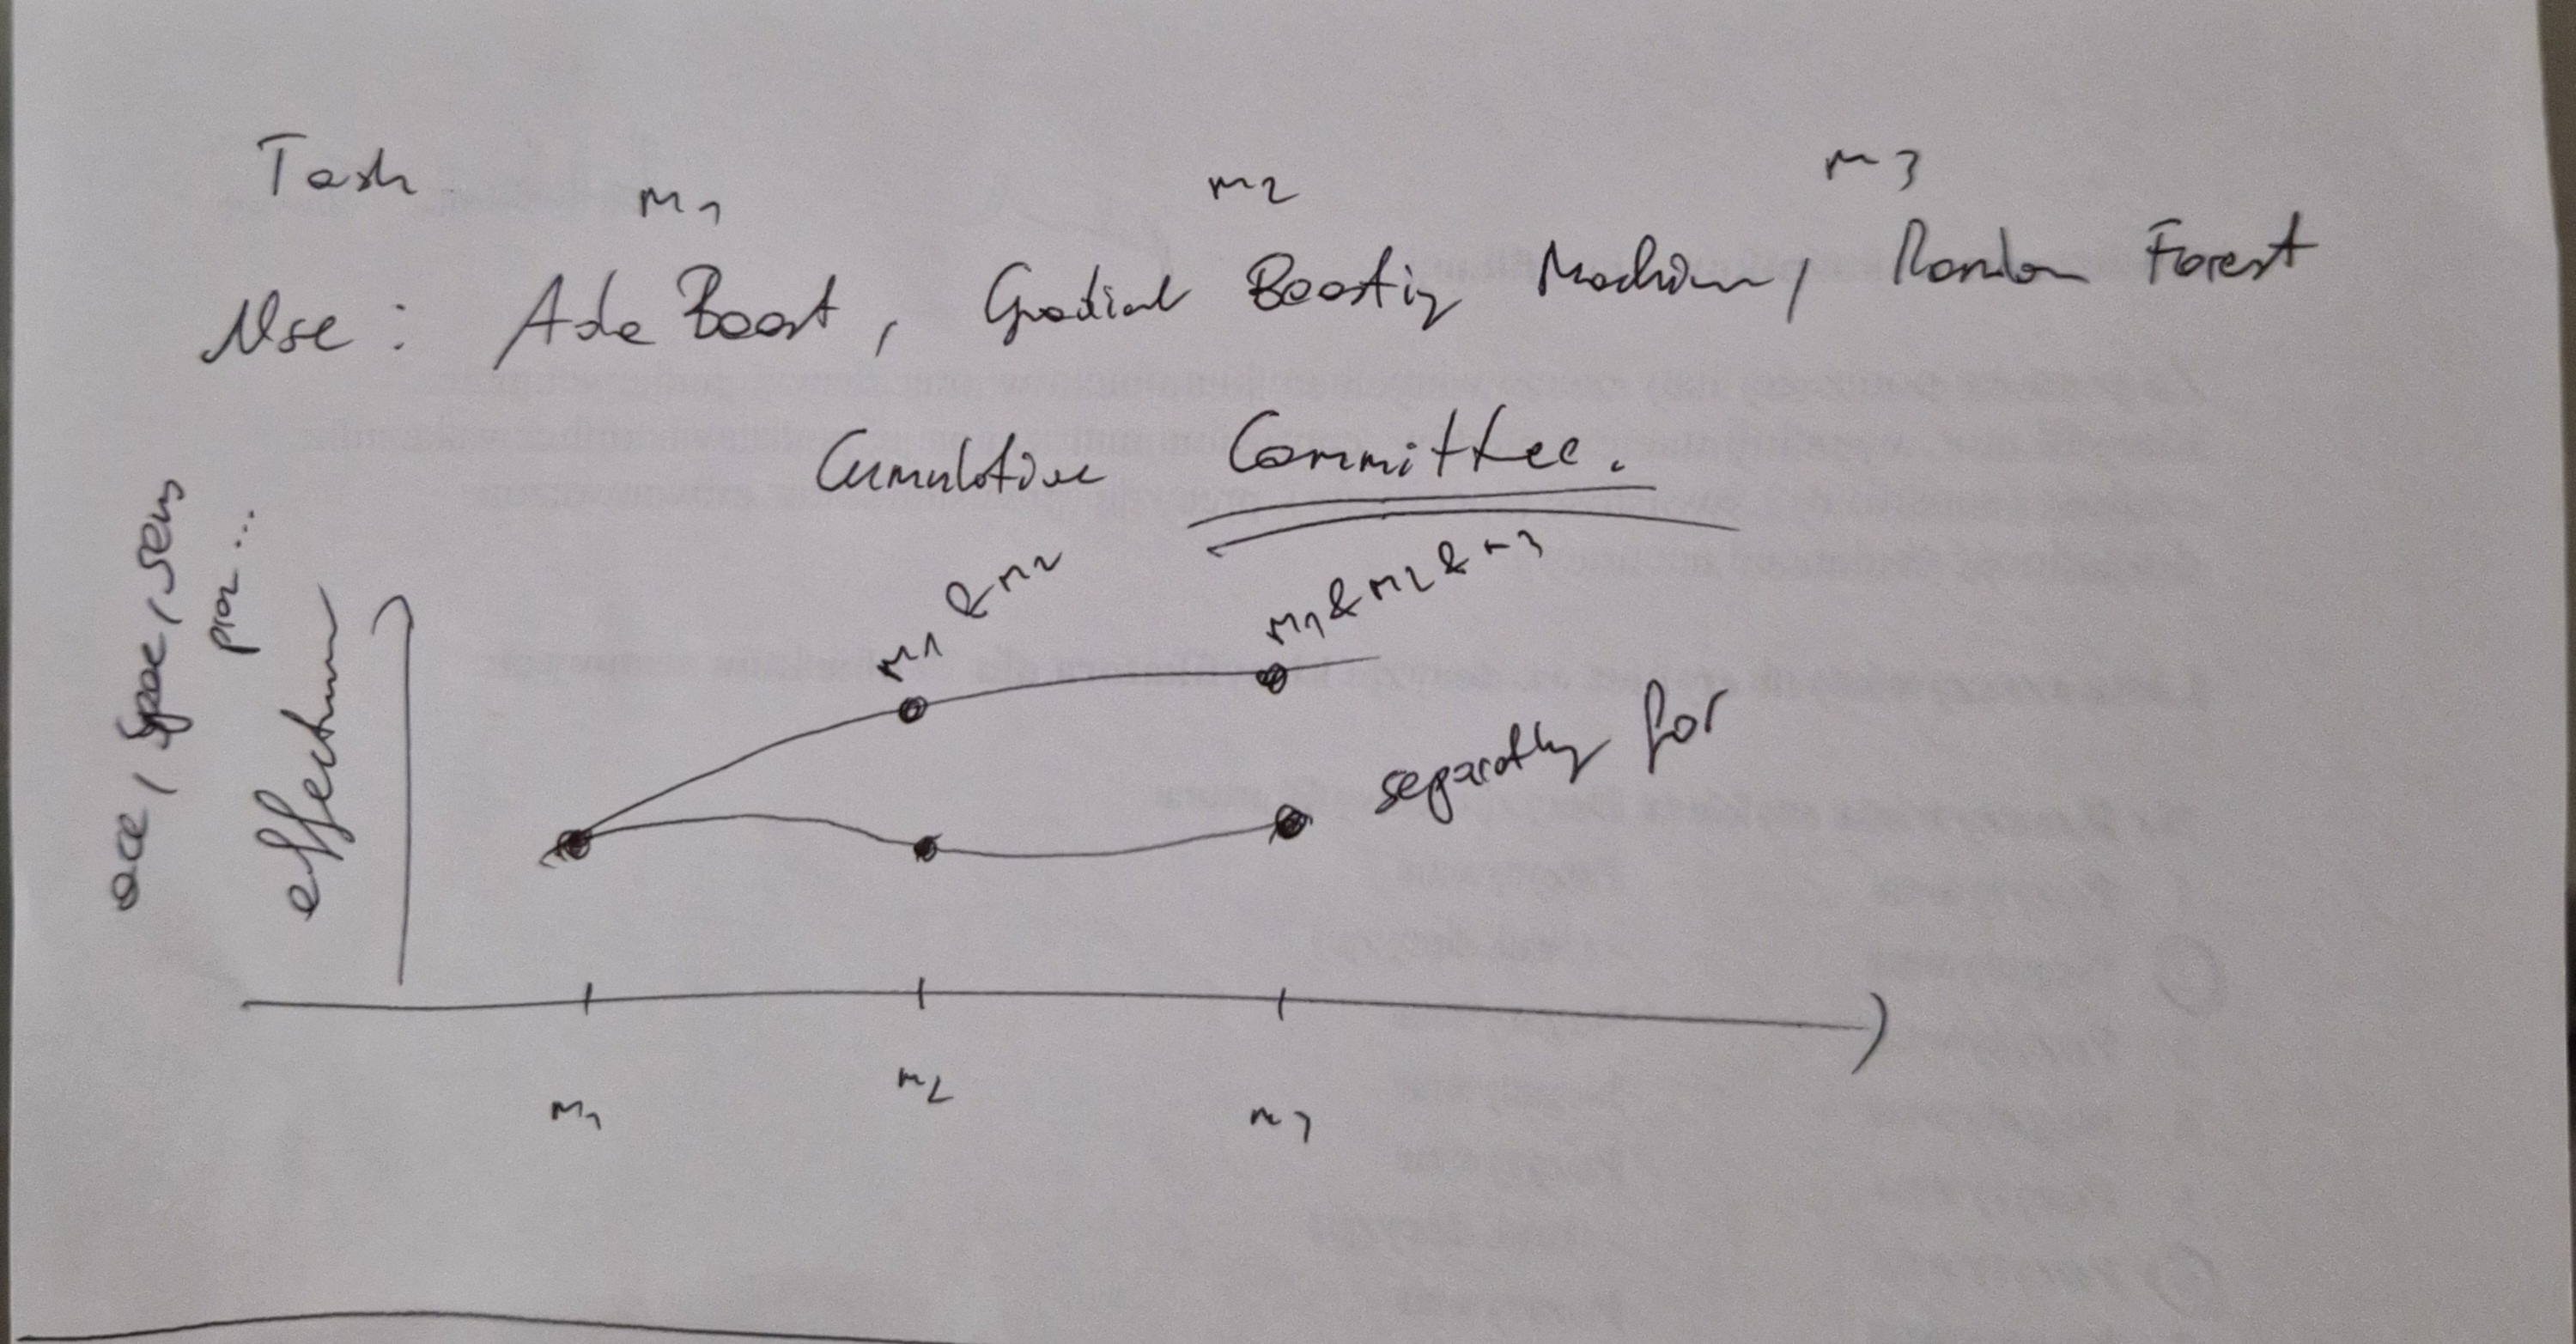 Task
m1 m2 m3
Use: Ada Boost, Gradient Boosting Machine, Random Forest
Cumulative Committee.
acc, spec, sens
prec...
effectiveness
m1 & m2
m1 & m2 & m3
separatly for
m1 m2 m3